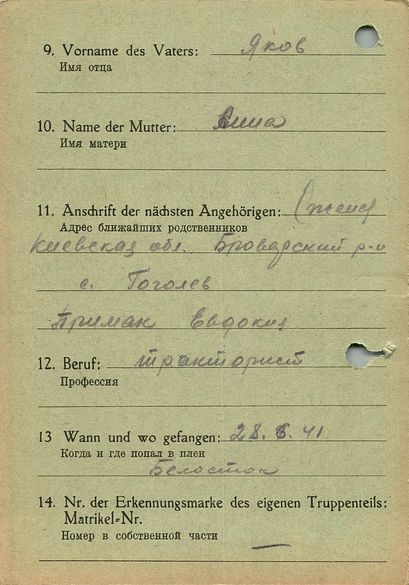 9. Vorname des Vaters: Яков
Имя отца
10. Name der Mutter: Анна
Имя матери
11. Anschrift der nächsten Angehörigen: (жена)
Адрес ближайших родственников
Киевская обл. Броварский р-н
с. Гоголев
Примак Евдокия
12. Beruf: тракторист
Профессия
13 Wann und wo gefangen: 28. 6. 41
Когда и где попал в плен
Белосток
14. Nr. der Erkennungsmarke des eigenen Truppenteils:
Matrikel-Nr.
Номер в собственной части —